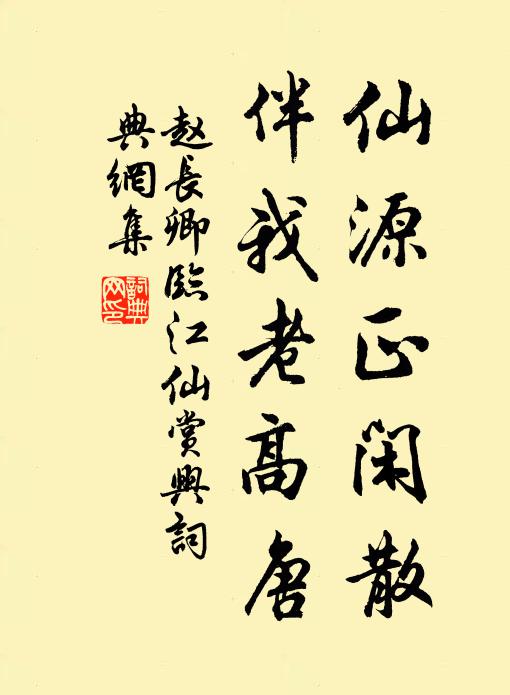 仙源正闲散
伴我老高唐
赵長卿臨江仙賞興詞
典網集
詞典網印